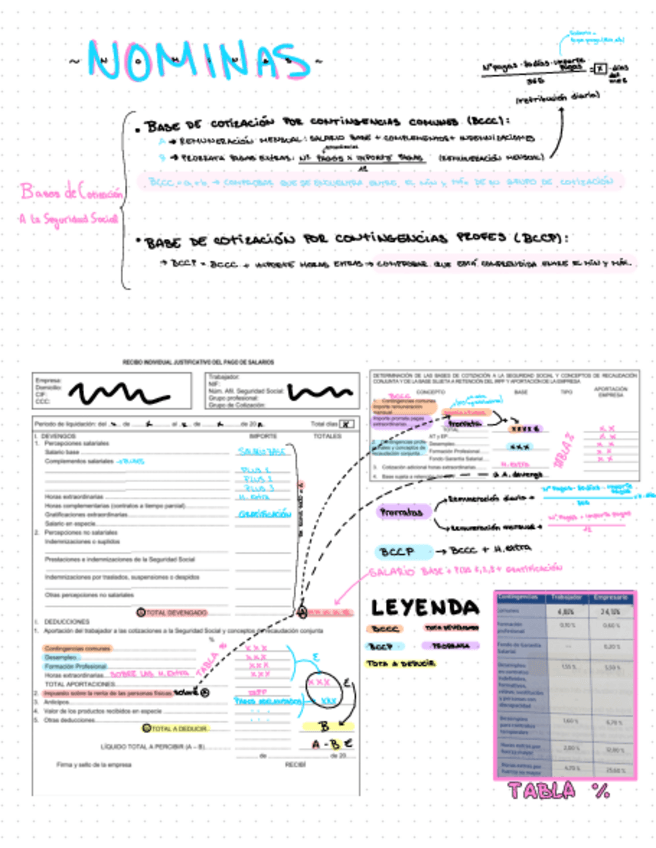 ~ NOMINAS ~
Nº pagas · 30 días · importe pagas
365
= x · días del mes
(retribución diaria)
Bases de Cotización
A la Seguridad Social
• BASE DE COTIZACIÓN POR CONTINGENCIAS COMUNES (BCCC):
A → REMUNERACIÓN MENSUAL: SALARIO BASE + COMPLEMENTOS + INDEMNIZACIONES
B → PRORRATA PAGAS EXTRAS: Nº PAGAS X IMPORTE PAGAS (REMUNERACIÓN MENSUAL)
12
BCCC = A + B → COMPROBAR QUE SE ENCUENTRA ENTRE EL MÍN Y MÁX DE SU GRUPO DE COTIZACIÓN
• BASE DE COTIZACIÓN POR CONTINGENCIAS PROFES (BCCP):
→ BCCP = BCCC + IMPORTE HORAS EXTRAS → COMPROBAR QUE ESTÁ COMPRENDIDA ENTRE EL MÍN Y MÁX.
RECIBO INDIVIDUAL JUSTIFICATIVO DEL PAGO DE SALARIOS
Empresa:
Domicilio:
CIF:
CCC:
Trabajador:
NIF:
Núm. Afil. Seguridad Social:
Grupo profesional:
Grupo de Cotización:
Periodo de liquidación: del de al de de 20 Total días X
I. DEVENGOS IMPORTE TOTALES
1. Percepciones salariales
Salario base SALARIO BASE
Complementos salariales
PLUS 1
PLUS 2
PLUS 3
Horas extraordinarias H. EXTRA
Horas complementarias (contratos a tiempo parcial)
Gratificaciones extraordinarias GRATIFICACIÓN
Salario en especie
2. Percepciones no salariales
Indemnizaciones o suplidos
Prestaciones e indemnizaciones de la Seguridad Social
Indemnizaciones por traslados, suspensiones o despidos
Otras percepciones no salariales
TOTAL DEVENGADO A
I. DEDUCCIONES
1. Aportación del trabajador a las cotizaciones a la Seguridad Social y conceptos de recaudación conjunta
Contingencias comunes XXX
Desempleo XXX
Formación Profesional XXX
Horas extraordinarias SOBRE LAS H. EXTRA XXX
TABLA %
TOTAL APORTACIONES XXX
2. Impuesto sobre la renta de las personas físicas SOBRE A IRPF
3. Anticipos XXX
4. Valor de los productos recibidos en especie
5. Otras deducciones
TOTAL A DEDUCIR B
LÍQUIDO TOTAL A PERCIBIR (A – B) A - B €
de de 20
Firma y sello de la empresa RECIBÍ
DETERMINACIÓN DE LAS BASES DE COTIZACIÓN A LA SEGURIDAD SOCIAL Y CONCEPTOS DE RECAUDACIÓN
CONJUNTA Y DE LA BASE SUJETA A RETENCIÓN DEL IRPF Y APORTACIÓN DE LA EMPRESA
BCCC
CONCEPTO BASE TIPO APORTACIÓN EMPRESA
1. Contingencias comunes
Importe remuneración mensual
Importe prorrata pagas extraordinarias Prorrata
TOTAL XXXX
AT y EP
Desempleo XXX
Formación Profesional
Fondo Garantía Salarial
TABLA %
3. Cotización adicional horas extraordinarias H. extra
4. Base sujeta a retención
Prorratas
Remuneración diaria =
Nº Pagas · 30 días · importe pagas
365
Remuneración mensual =
Nº Pagas · importe pagas
12
BCCP → BCCC + H. extra
SALARIO BASE + PLUS 1, 2, 3 + GRATIFICACIÓN
LEYENDA
BCCC TOTAL DEVENGADO
BCCP PRORRATA
TOTAL A DEDUCIR
Contingencias Trabajador Empresario
Comunes 4,70% 23,60%
Formación profesional 0,10% 0,60%
Fondo de Garantía Salarial - 0,20%
Desempleo 1,55% 5,50%
Desempleo para contratos temporales 1,60% 6,70%
Horas extras por fuerza mayor 2,00% 12,00%
Horas extras por fuerza no mayor 4,70% 23,60%
TABLA %